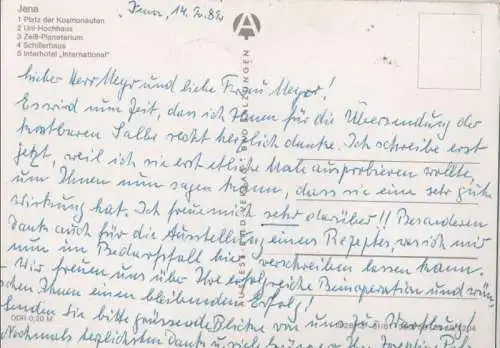 Jena
1 Platz der Kosmonauten
2 Uni-Hochhaus
3 Zeiß-Planetarium
4 Schillerhaus
5 Interhotel „International"
DDR 0,20 M
Jena, 14.2.82
Lieber Herr Meyer und liebe Frau Meyer!
Es wird nun Zeit, daß ich Ihnen für die Übersendung der
kostbaren Salbe recht herzlich danke. Ich schreibe erst
jetzt, weil ich sie erst etliche Male ausprobieren wollte,
um Ihnen nun sagen kann, dass sie eine sehr gute
Wirkung hat. Ich freue mich sehr darüber!! Besonderen
Dank auch für die Ausstellung eines Rezeptes, was ich mir
nun im Bedarfsfall hier verschreiben lassen kann.
Wir freuen uns über Ihre erfolgreiche Beinoperation und wün-
schen Ihnen einen bleibenden Erfolg!
Senden Sie bitte grüssende Blicke von uns zur Wartburg!
Nochmals herzlichsten Dank u. viele